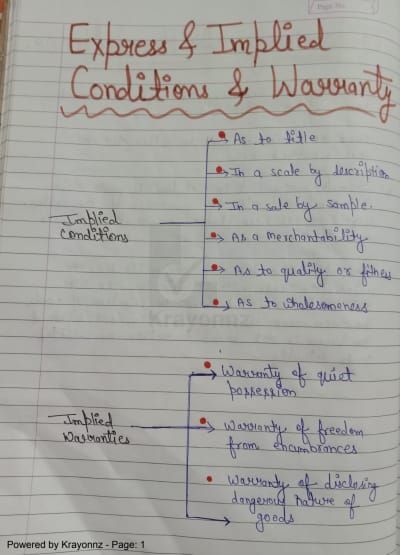 Page No.
Express & Implied
Conditions & Warranty
As to title
In a scale by description
In a sale by sample.
Implied
conditions
As a merchantability
As to quality or fitness
As to wholesomeness
Krayonnz
Warranty of quiet
possession
Implied
Warranties
Warranty of freedom
from encumbrances
Warranty of disclosing
dangerous nature of
goods
Powered by Krayonnz - Page: 1